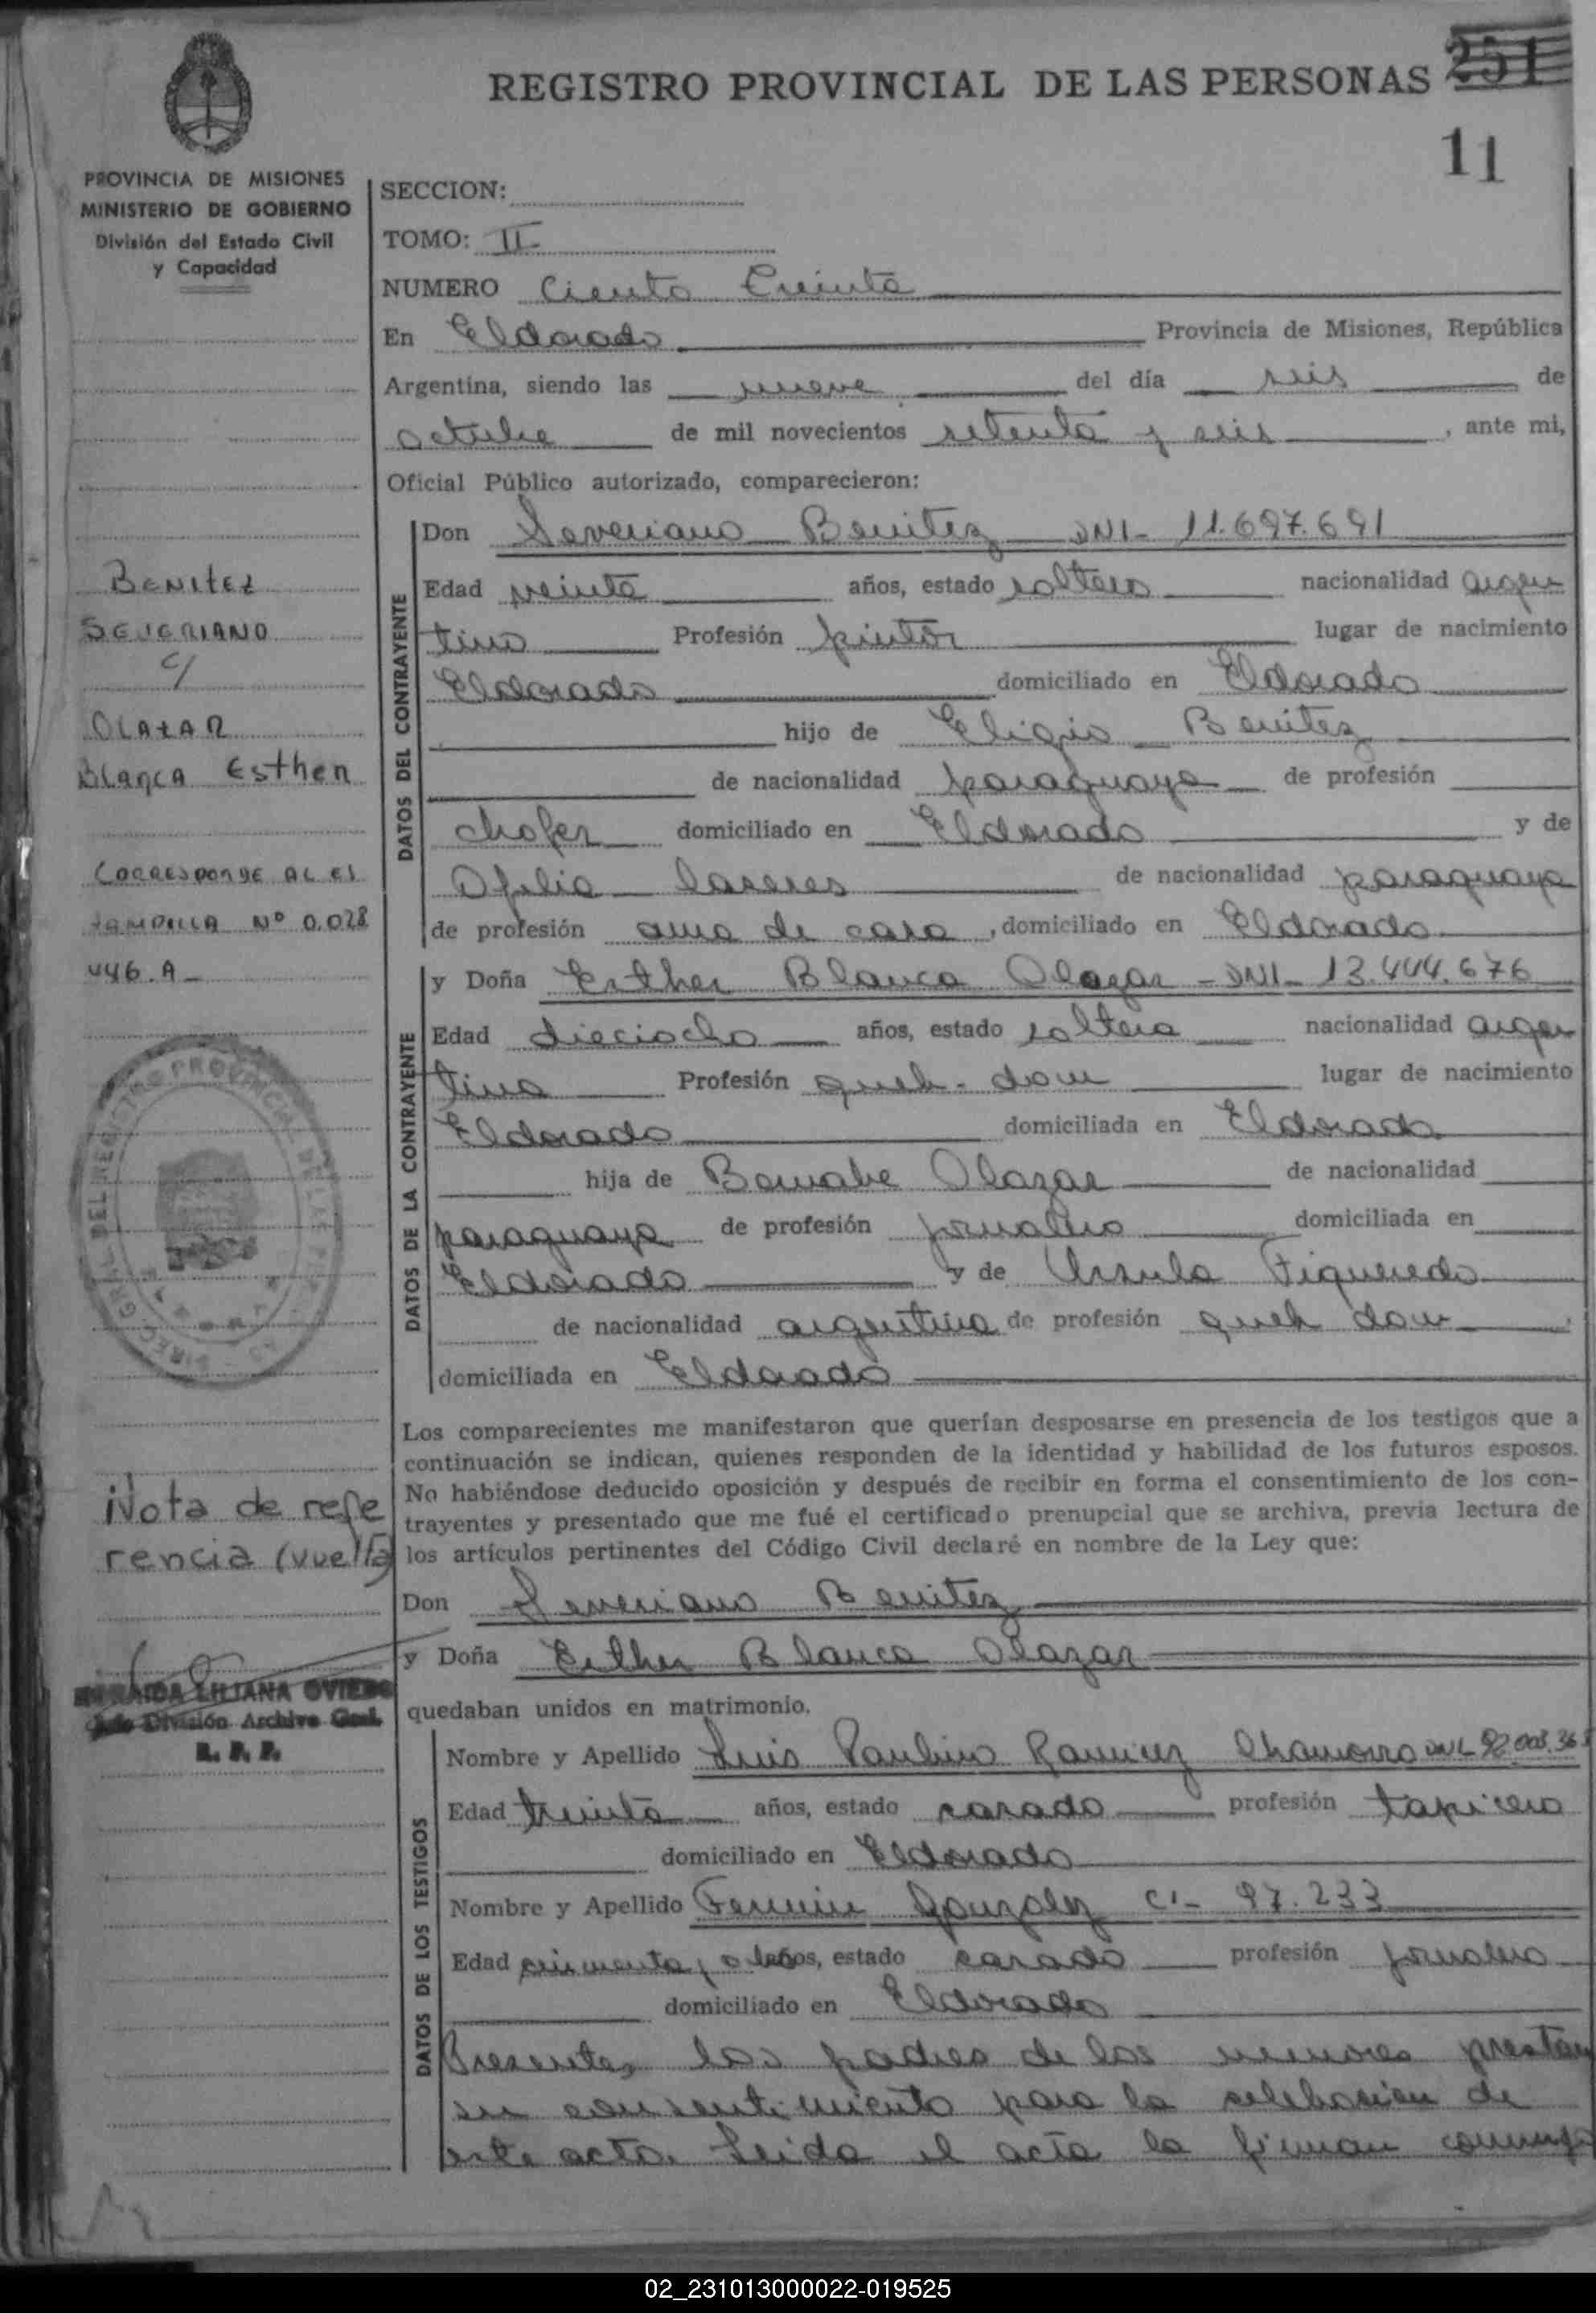 REGISTRO PROVINCIAL DE LAS PERSONAS 251
11
PROVINCIA DE MISIONES
MINISTERIO DE GOBIERNO
División del Estado Civil
y Capacidad
SECCION:
TOMO: II
NUMERO Ciento Treinta
En Eldorado Provincia de Misiones, República
Argentina, siendo las nueve del día seis de
octubre de mil novecientos setenta y seis, ante mi,
Oficial Público autorizado, comparecieron:
BENITEZ
SEVERIANO
c/
OLAZAR
Blanca Esther
CORRESPONDE AL ES
TAMPILLA Nº 0.028
446.A-
DATOS DEL CONTRAYENTE
Don Severiano Benitez DNI- 11.697.691
Edad veinte años, estado soltero nacionalidad argen
tino Profesión pintor lugar de nacimiento
Eldorado domiciliado en Eldorado
hijo de Eligio Benitez
de nacionalidad paraguaya de profesión
chofer domiciliado en Eldorado y de
Ofelia de nacionalidad paraguaya
de profesión ama de casa, domiciliado en Eldorado
DATOS DE LA CONTRAYENTE
y Doña Esther Blanca Olazar - DNI- 13.444.676
Edad dieciocho años, estado soltera nacionalidad argen
tina Profesión queh. dom lugar de nacimiento
Eldorado domiciliada en Eldorado
hija de Bernabe Olazar de nacionalidad
paraguaya de profesión jornalero domiciliada en
Eldorado y de Ursula Figueredo
de nacionalidad argentina de profesión queh dom
domiciliada en Eldorado
Los comparecientes me manifestaron que querían desposarse en presencia de los testigos que a
continuación se indican, quienes responden de la identidad y habilidad de los futuros esposos.
No habiéndose deducido oposición y después de recibir en forma el consentimiento de los con-
trayentes y presentado que me fué el certificado prenupcial que se archiva, previa lectura de
los artículos pertinentes del Código Civil declaré en nombre de la Ley que:
Nota de refe
rencia (vuelta)
Don Severiano Benitez
y Doña Esther Blanca Olazar
quedaban unidos en matrimonio.
LILIANA OVIEDO
Jefe División Archivo Gral.
R. P. P.
DATOS DE LOS TESTIGOS
Nombre y Apellido Luis Paulino Ramirez Chamorro DNI
Edad treinta años, estado casado profesión tapicero
domiciliado en Eldorado
Nombre y Apellido Fermin Gonzalez CI- 97.233
Edad cincuenta y ocho años, estado casado profesión jornalero
domiciliado en Eldorado
Presentes los padres de los menores prestan
su consentimiento para la celebracion de
este acto. Leida el acta la firman conmigo
02_231013000022-019525